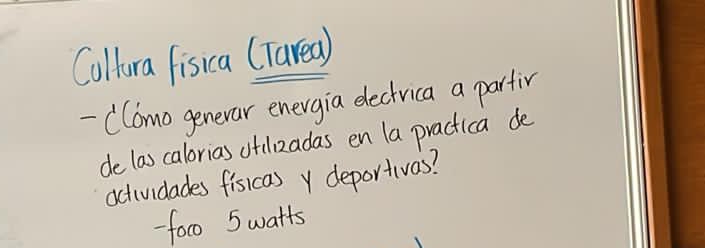 Cultura física (Tarea)
- ¿Cómo generar energía electrica a partir
de las calorias utilizadas en la practica de
actividades físicas y deportivas?
- foco 5 watts